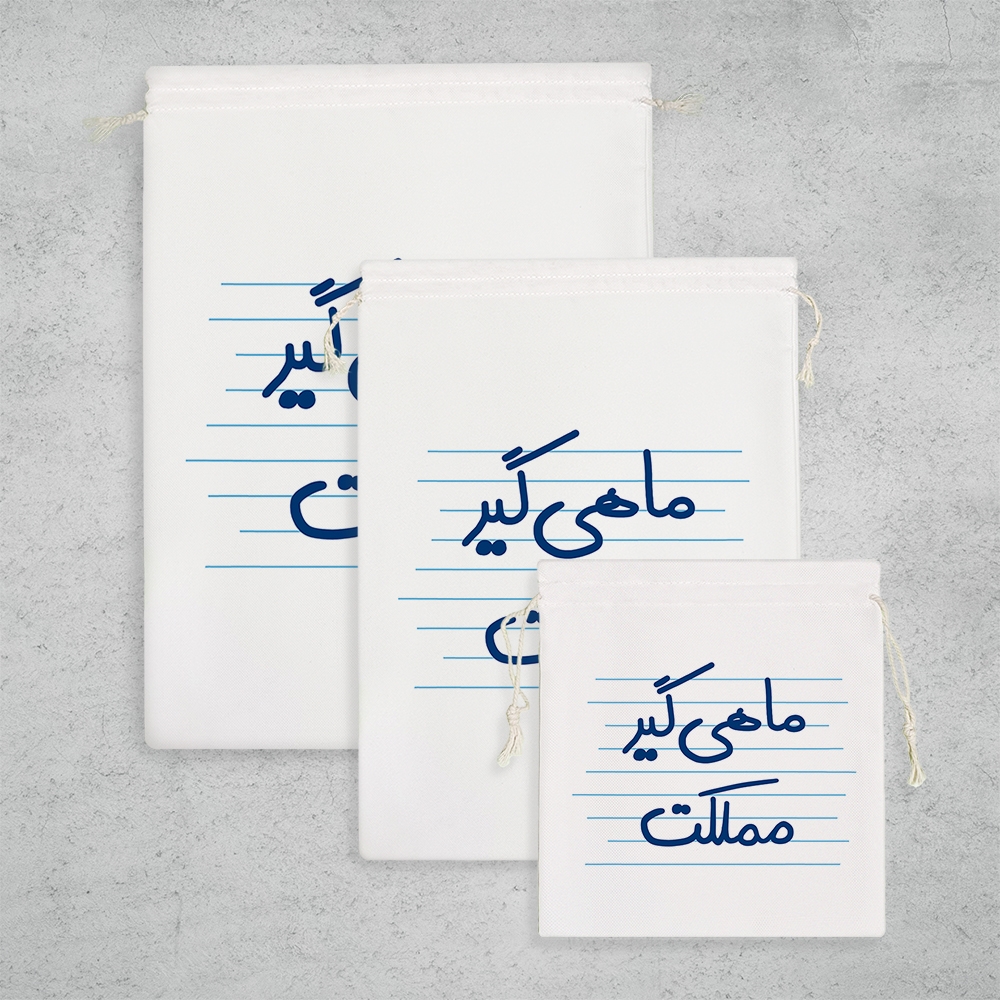 گیر
ماهی گیر
ماهی گیر
مملکت